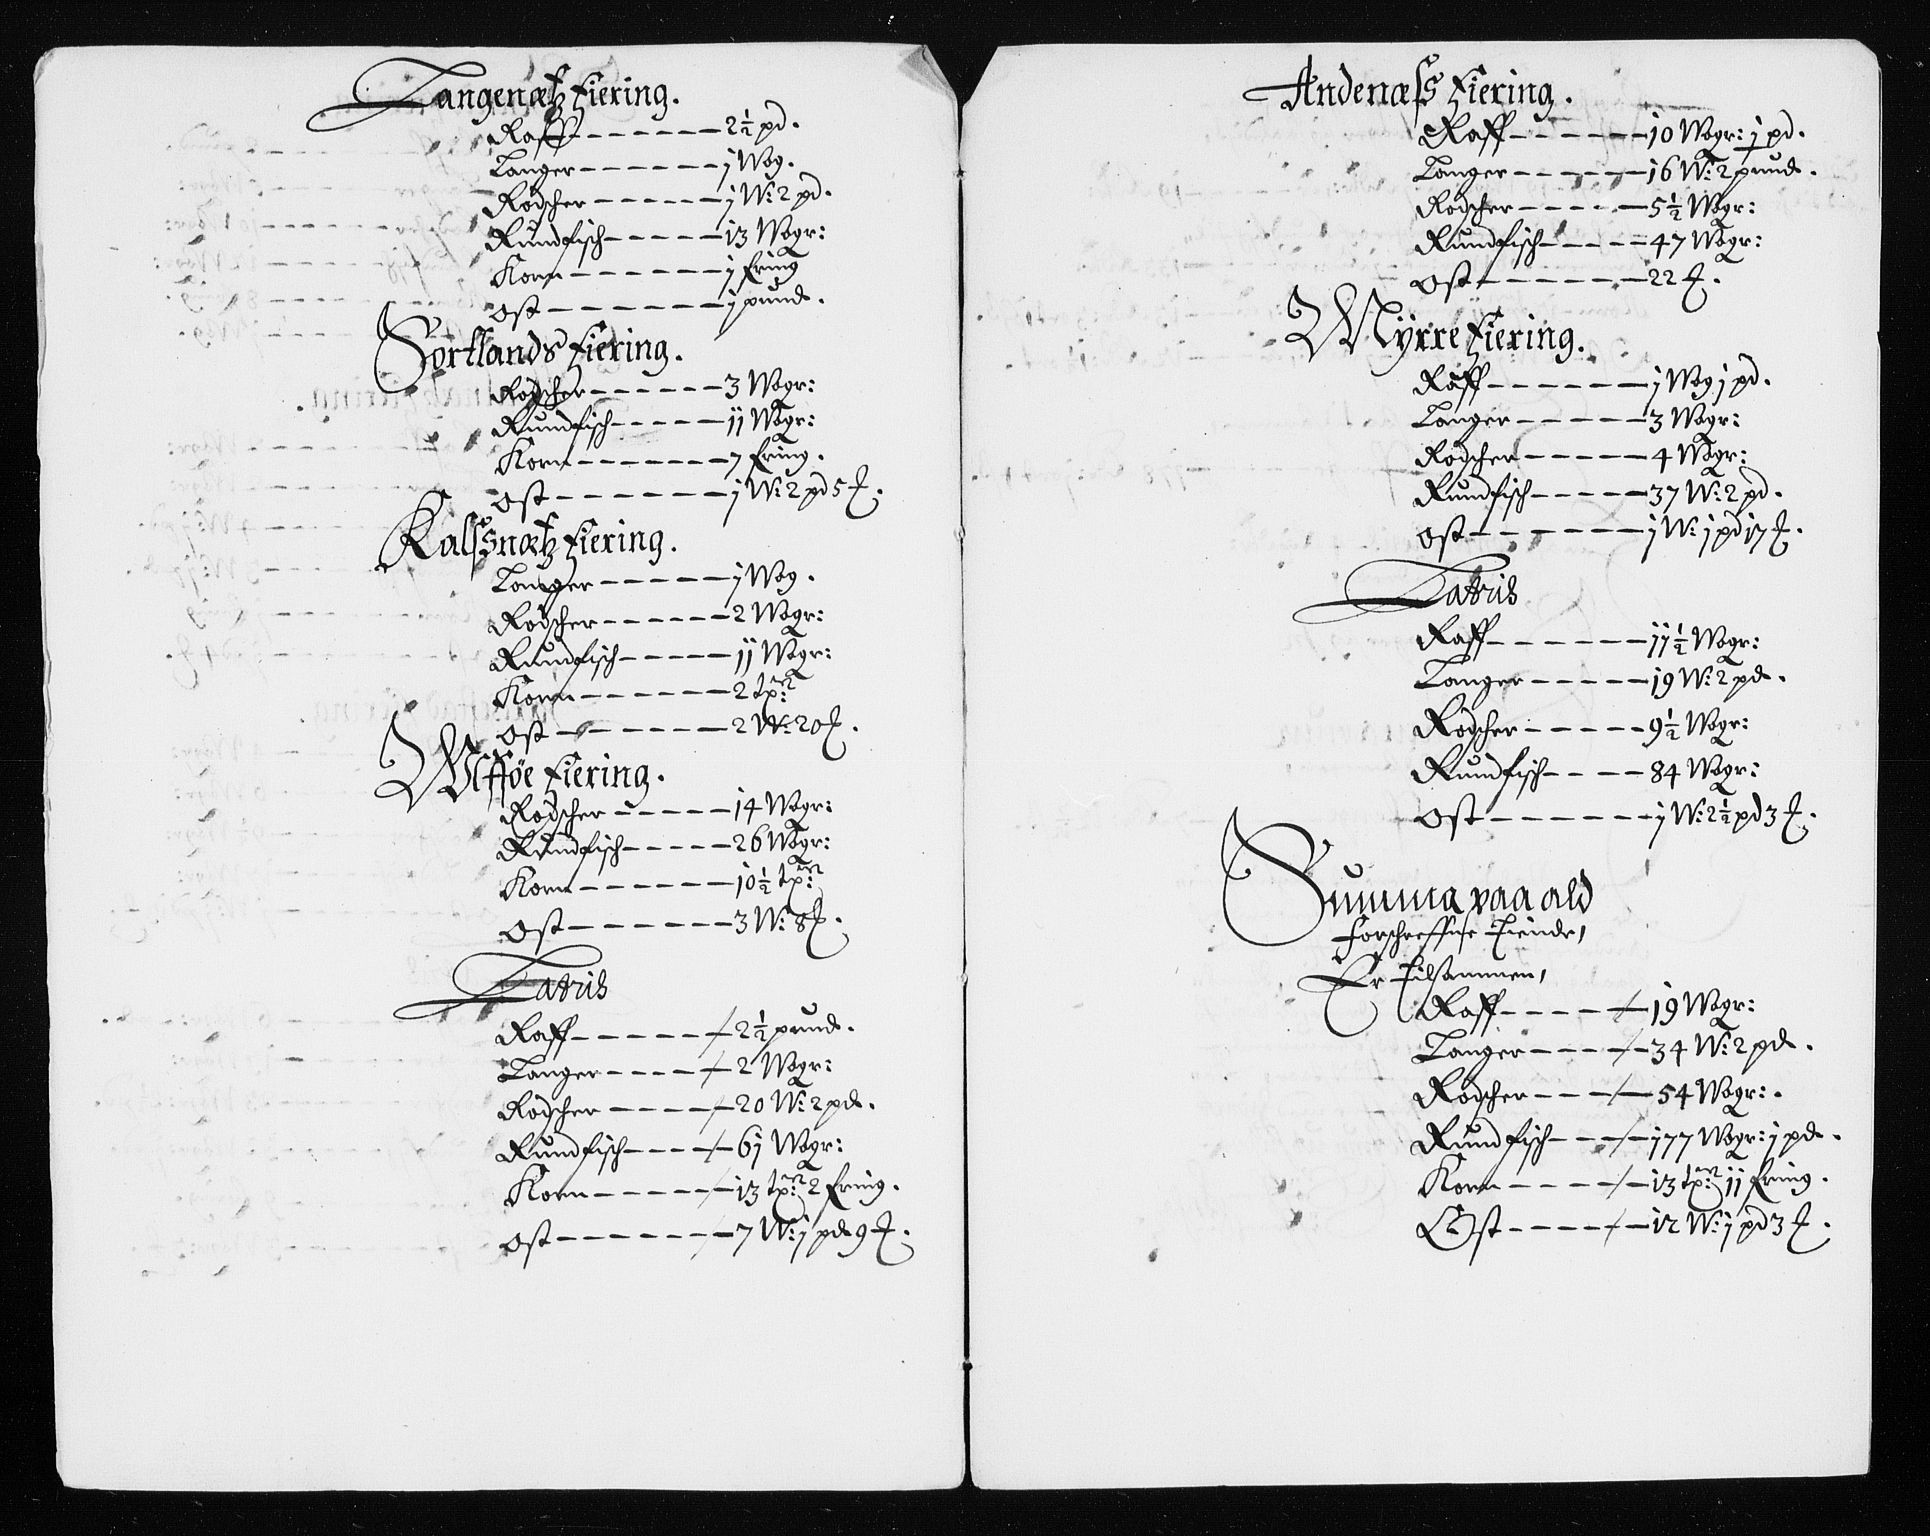 Langenætz Fiering.
Raff - - - - - - - 2½ pd.
Langer - - - - - - - j Wog.
Rodscher - - - - - - j W: 2 pd.
Rundfisch - - - - - 13 Wogr:
Korn - - - - - - - j Ering
Ost - - - - - - - j pund.
Sortlands Fiering.
Rodscher - - - - - - 3 Wogr:
Rundfisch - - - - - jj Wogr:
Korn - - - - - - - 7 Ering.
Ost - - - - - - - j W: 2 pd 5 ℔.
Kalssnætz Fiering.
Langer - - - - - - j Wog.
Rodscher - - - - - - 2 Wogr:
Rundfisch - - - - - jj Wogr:
Korn - - - - - - - 2 tp:er
Ost - - - - - - - 2 W: 20 ℔.
Ulfföe Fiering.
Rodscher - - - - - 14 Wogr:
Rundfisch - - - - - 26 Wogr:
Korn - - - - - - - 10½ tp:er
Ost - - - - - - - 3 W: 8 ℔.
Latris
Raff - - - - - - / 2½ pund.
Langer - - - - / 2 Wogr:
Rodscher - - - - / 20 W: 2 pd.
Rundfisch - - - - / 6j Wogr:
Korn - - - - - - / 13 tp:er 2 Ering.
Ost - - - - - - - / 7 W: j pd 9 ℔.
Andenæss Fiering.
Raff - - - - - - - 10 Wogr: j pd.
Langer - - - - - - 16 W: 2 pund.
Rodscher - - - - - 5½ Wogr:
Rundfisch - - - - - 47 Wogr:
Ost - - - - - - - 22 ℔.
Myrre Fiering.
Raff - - - - - - - j Wog j pd.
Langer - - - - - - 3 Wogr:
Rodscher - - - - - 4 Wogr:
Rundfisch - - - - - 37 W: 2 pd.
Ost - - - - - - - j W: j pd 17 ℔.
Latris
Raff - - - - - - - jj½ Wogr:
Langer - - - - - - 19 W: 2 pd.
Rodscher - - - - - 9½ Wogr:
Rundfisch - - - - 84 Wogr:
Ost - - - - - - - j W: 2½ pd 3 ℔.
Summa paa ald
Forschreffne Tiende,
Er Tilsammen,
Raff - - - - / 19 Wogr:
Langer - - - / 34 W: 2 pd.
Rodscher - - - / 54 Wogr:.
Rundfisch - - - / 177 Wogr: j pd.
Korn - - - - / 13 tp:er jj Ering.
Ost - - - - / 12 W: j pd 3 ℔.